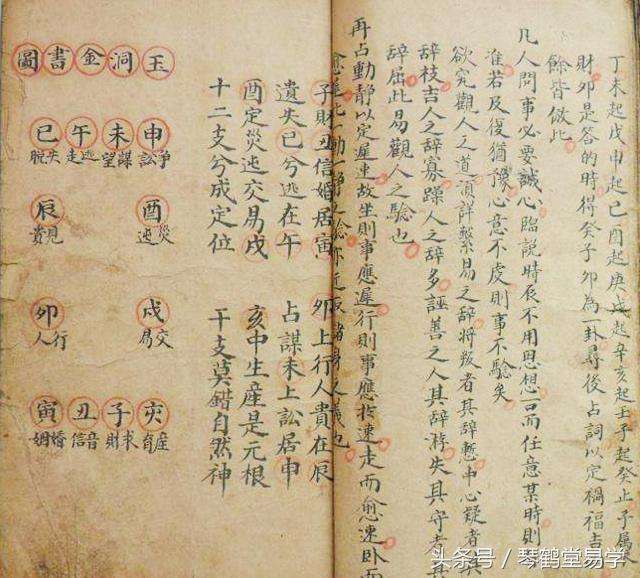 丁未起戊申起己酉起庚戌起辛亥起壬子起癸止子屬
財卯是答的時得癸子卯為一卦尋後占詞以定禍福吉
餘皆倣此
凡人問事必要誠心臨說時辰不用思想言而任意某時則
准若反後猶豫心意不處則事不驗矣
欲究觀人之道須詳繫易之辭將叛者其辭慙中心疑者其
辭枝吉人之辭寡躁人之辭多誣善之人其辭游失其守者其
辭屈此易觀人之驗也
再占動靜以定遲速故坐則事應遲行則事應於速走而愈速卧而
愈遲此一動一靜之驗亦近取諸身之義也
子財丑信婚居寅 卯上行人貴在辰
遺失巳兮逃在午 占謀未上訟居申
酉定災迍交易戌 亥中生產是元根
十二支兮成定位 干支莫錯自然神
玉洞金書圖
申 未 午 巳
爭訟 謀望 逃走 失脫
酉 辰
災迍 見貴
戌 卯
交易 行人
亥 子 丑 寅
產育 求財 音信 婚姻
头条号 / 琴鹤堂易学